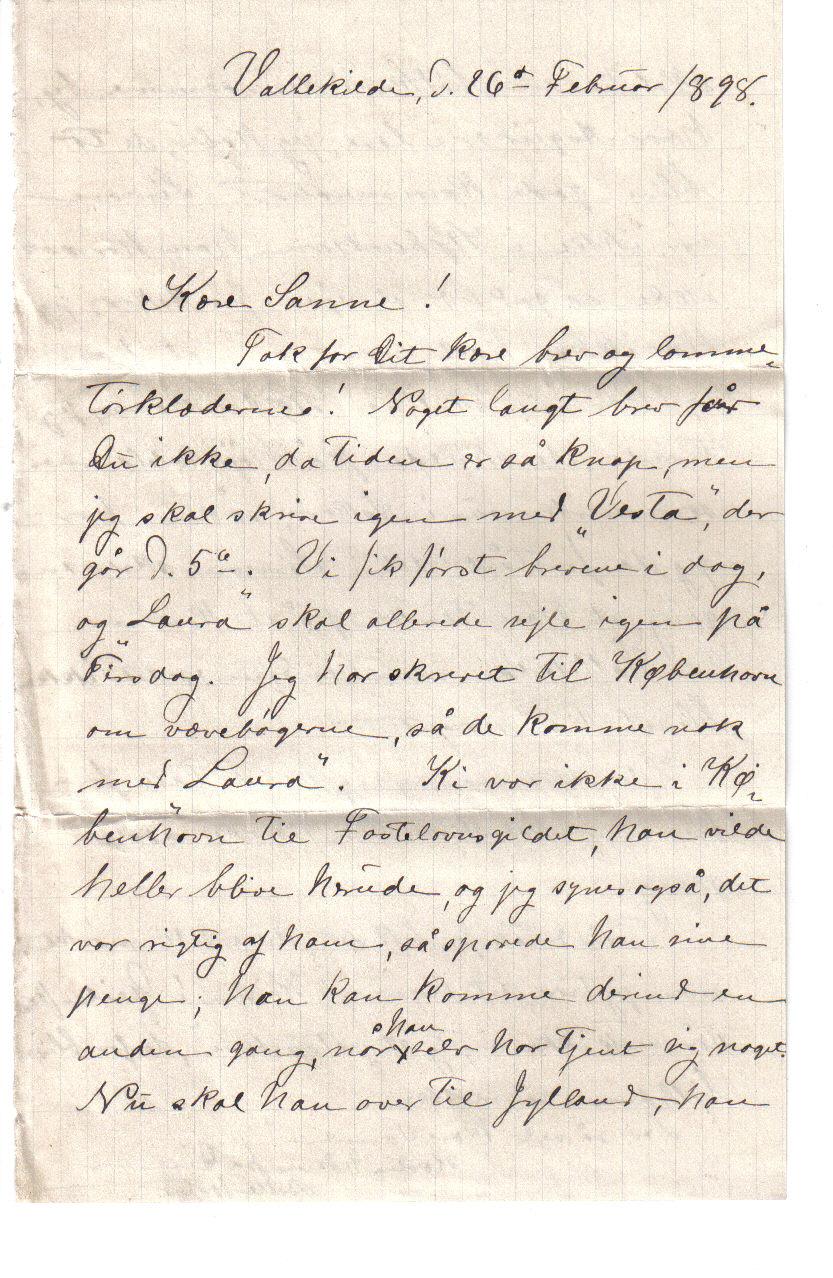 Vallekilde, d. 26de Februar 1898.
Kære Sanne!
Tak for Dit kære brev og lomme-
tørklæderne! Noget langt brev får
Du ikke, da tiden er så knap, men
jeg skal skrive igen med „Vesta”, der
går d. 5te. Vi fik først brevene i dag,
og „Laura” skal allerede sejle igen på
Tirsdag. Jeg har skrevet til København
om vævebøgerne, så de komme nok
med „Laura”. Ki var ikke i Kø-
benhavn til Fastelavnsgildet, han vilde
heller blive herude, og jeg synes også, det
var rigtig af ham, så sparede han sine
penge; han kan komme derind en
anden gang, når han selv har tjent sig noget.
Nu skal han over til Jylland, han